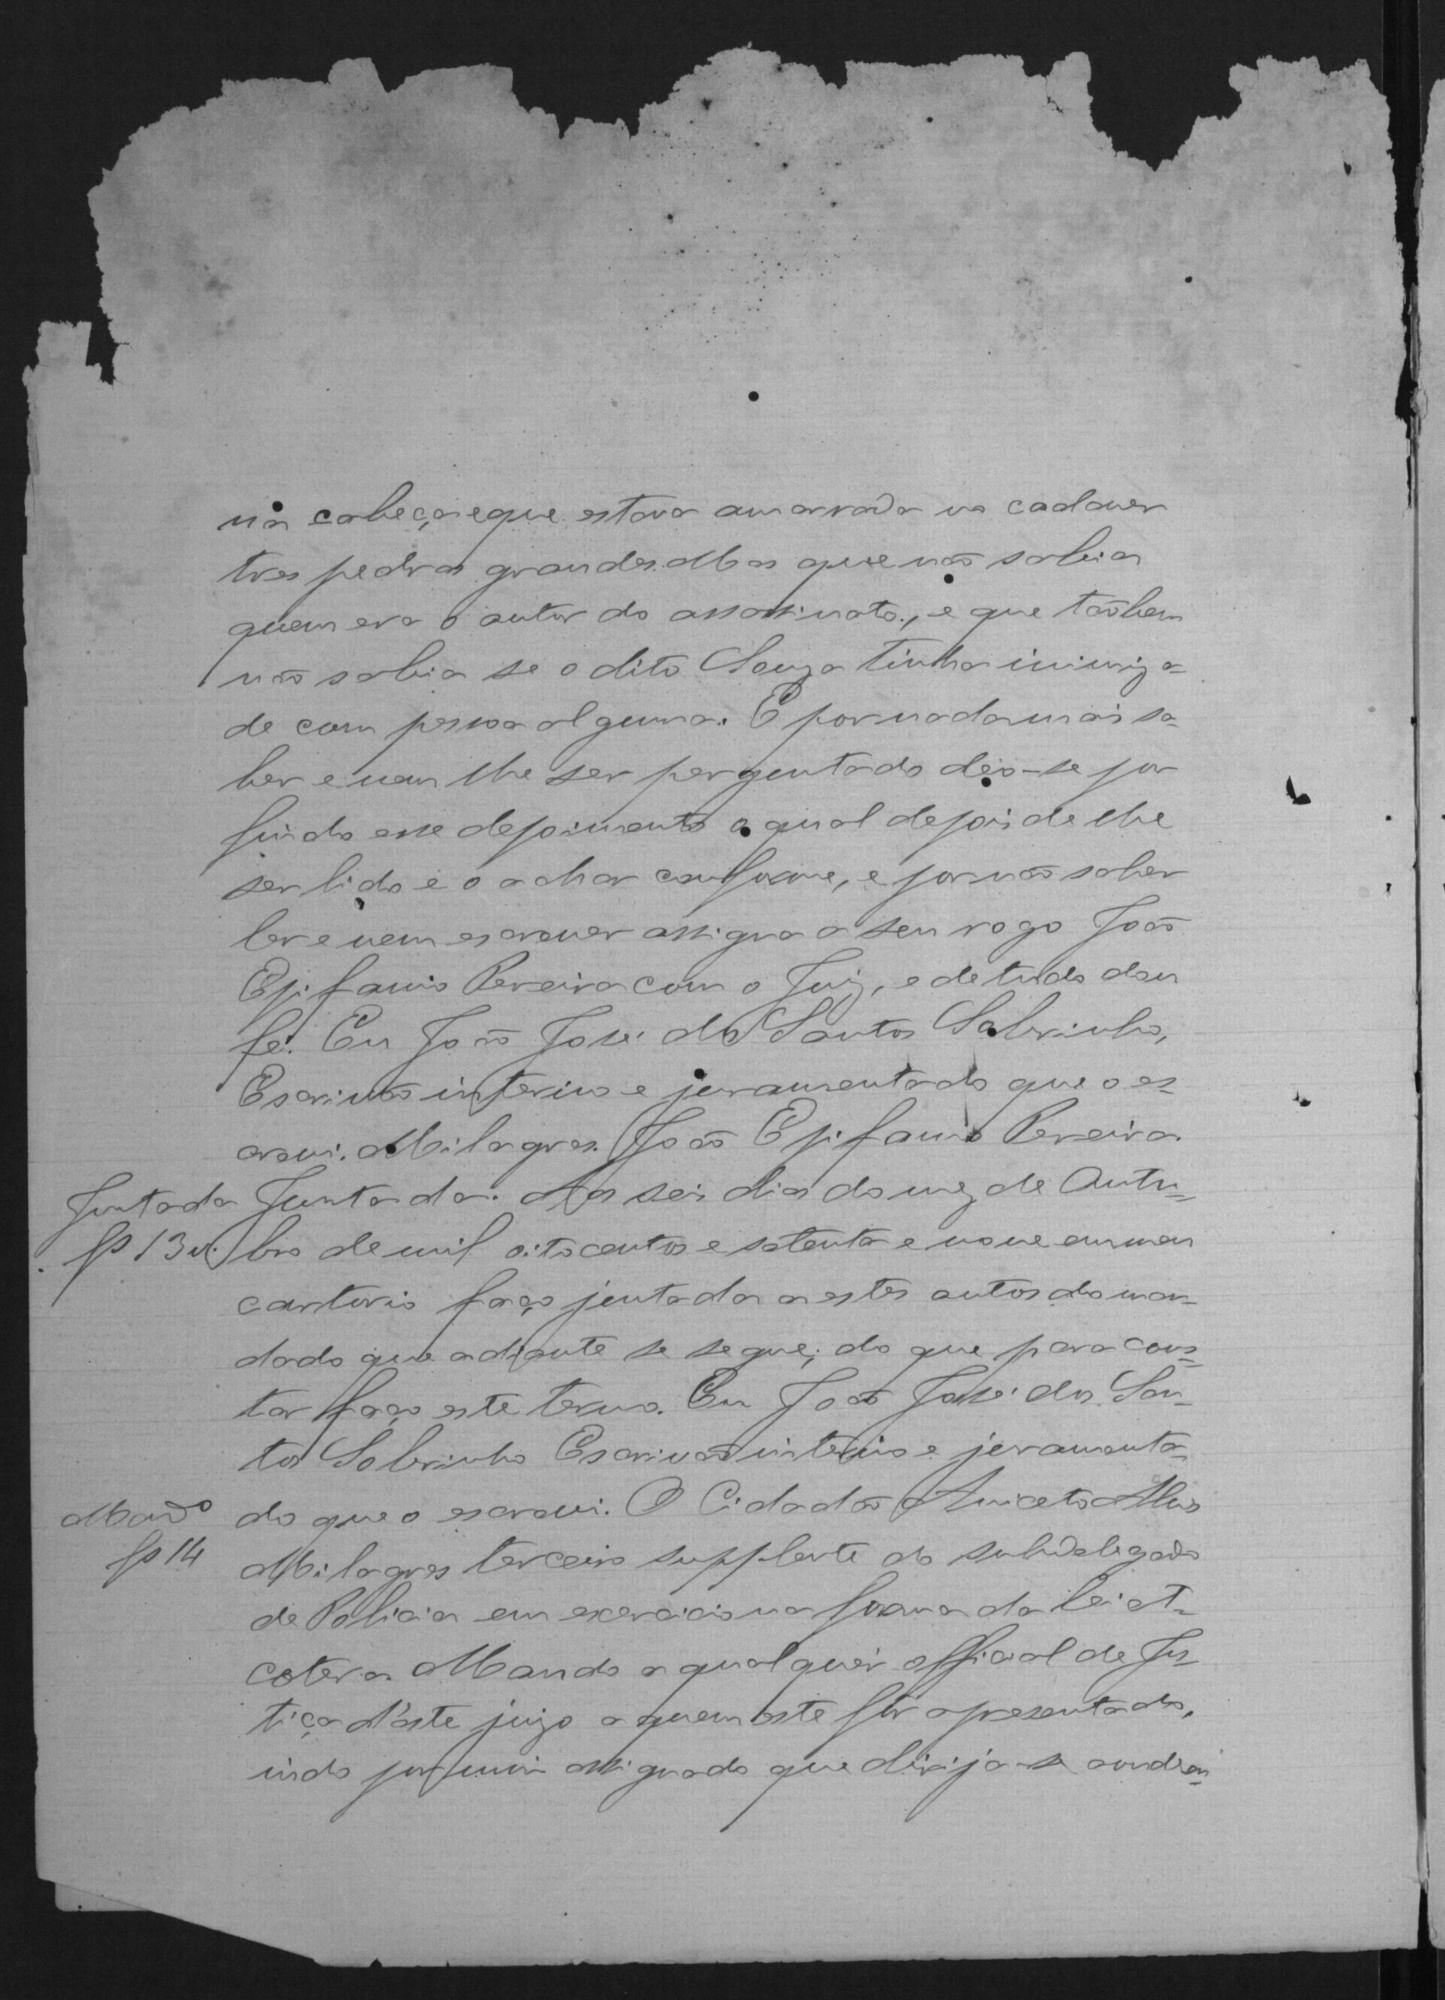 na cabeça e que estava amarrado no cadaver
tres pedras grandes. Mas que não sabia
quem era o autor do assassinato, e que tãobem
não sabia se o dito Souza tinha inimiza-
de com pessoa alguma. E por nada mais sa-
ber e nem lhe ser perguntado deo-se por
findo esse depoimento o qual depois de lhe
ser lido e o achar conforme, e por não saber
ler e nem escrever assigna a seu rogo João
Epifanio Pereira com o Juiz, e de tudo dou
fé. Eu João José dos Santos Sobrinho,
Escrivão interino e juramentado que o es-
crevi. Milagres. João Epifanio Pereira.
Juntada Juntada. Aos seis dias do mez de Outu-
fs 13 v. bro de mil oitocentos e setenta e nove em meu
cartorio faço juntada a estes autos do man-
dado que adiante se segue; do que para cons-
tar faço este termo. Eu João José dos San-
tos Sobrinho Escrivão interino e juramenta-
Mando do que o escrevi. O Cidadão Aniceto Alves
fs 14 Milagres terceiro supplente do subdelegado
de Policia em exercicio na forma da lei et-
cetera. Mando a qualquer official de Jus-
tiça d'este juizo a quem este fôr apresentado,
indo por mim assignado que dirija-se